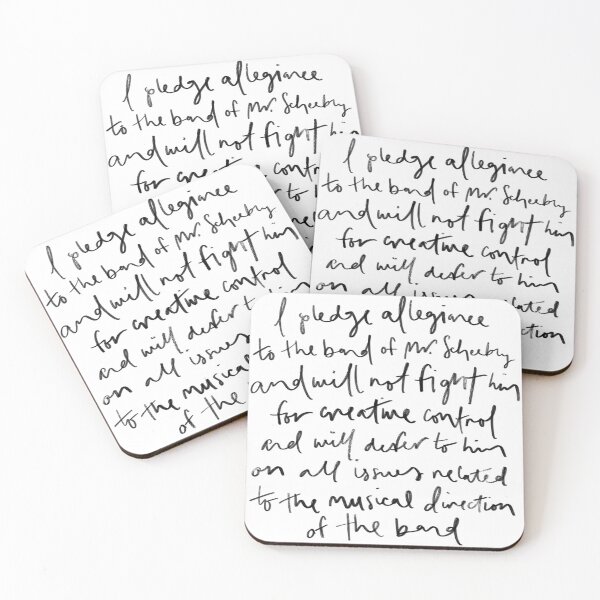 I pledge allegiance
to the band of Mr. Scheebly
and will not fight him
for
I pledge allegiance
to the band of Mr. Scheebly
and will not fight him
for creative control
and will defer to him
on all issues related
direction
I pledge allegiance
to the band of Mr. Scheebly
and will not fight him
for creative control
and will defer to him
on all issues
to the musical
of the
I pledge allegiance
to the band of Mr. Scheebly
and will not fight him
for creative control
and will defer to him
on all issues related
to the musical direction
of the band